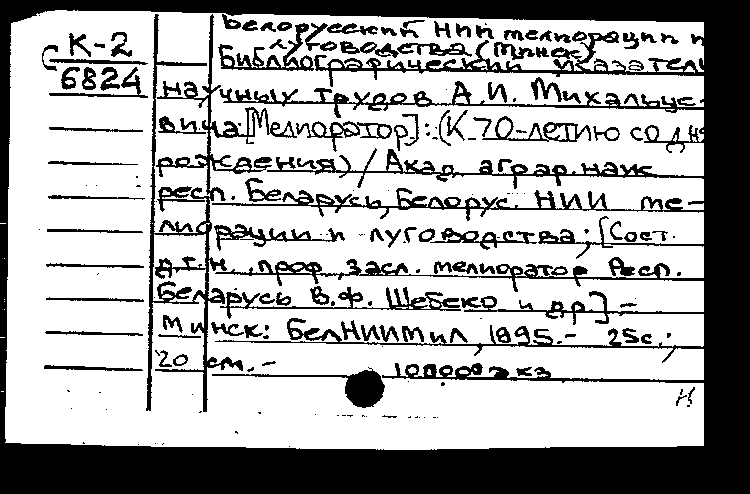 Белорусский НИИ мелиорации и
К-2 луговодства (Минск)
Библиографический указатель
6824
научных трудов А.И. Михальце-
вича: [Мелиоратор]: (К 70-летию со дня
рождения) / Акад. аграр. наук
респ. Беларусь, Белорус. НИИ ме-
лиорации и луговодства; [Сост.
д.т.н., проф., засл. мелиоратор Респ.
Беларусь В.Ф. Шебеко и др.] -
Минск: БелНИИМиЛ, 1995. - 25с.;
20 см. -